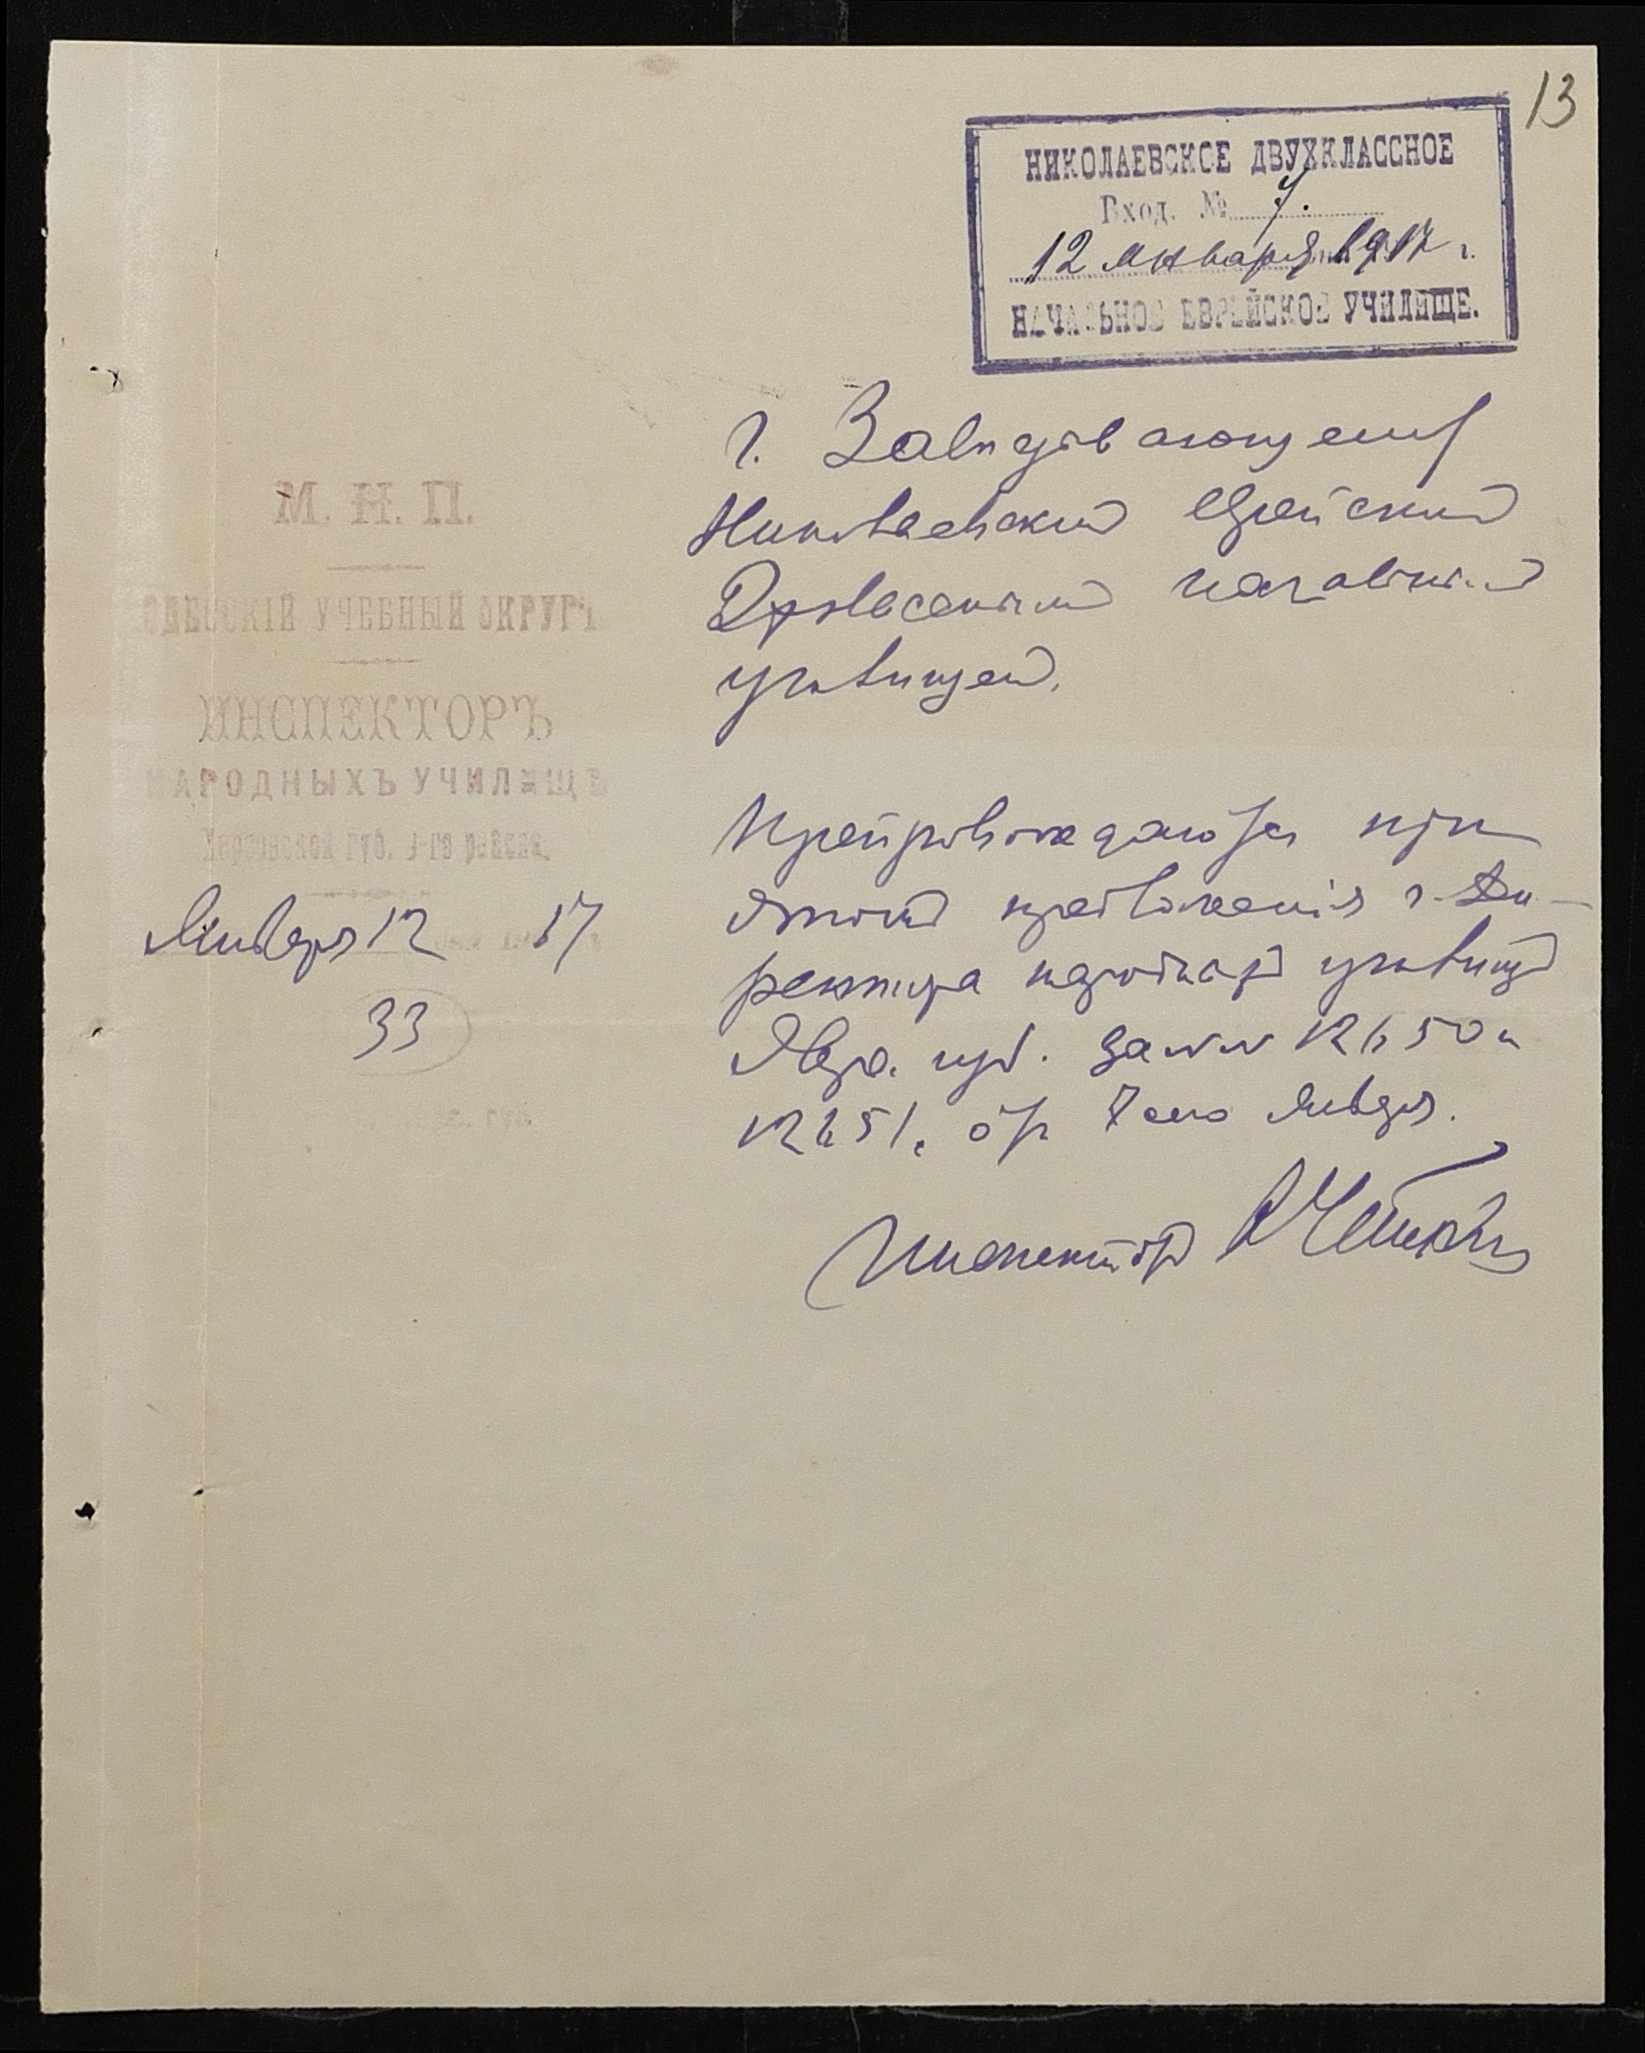 13
НИКОЛАЕВСКОЕ ДВУХКЛАССНОЕ
Вход. № 7.
12 января 1917 г.
НАЧАЛЬНОЕ ЕВРЕЙСКОЕ УЧИЛИЩЕ.
М. Н. П.
ОДЕССКІЙ УЧЕБНЫЙ ОКРУГЪ
ИНСПЕКТОРЪ
НАРОДНЫХЪ УЧИЛИЩЪ
Херсонской губ. района.
Января 12 17
33
Г. Завѣдывающему
Николаевскимъ Еврейскимъ
Двухкласснымъ начальнымъ
училищемъ.
Препровождаются при
этомъ предложенія г. Ди-
ректора народныхъ училищъ
губ. за №№ 12650 и
12651, отъ 7 сего Января.
Инспекторъ